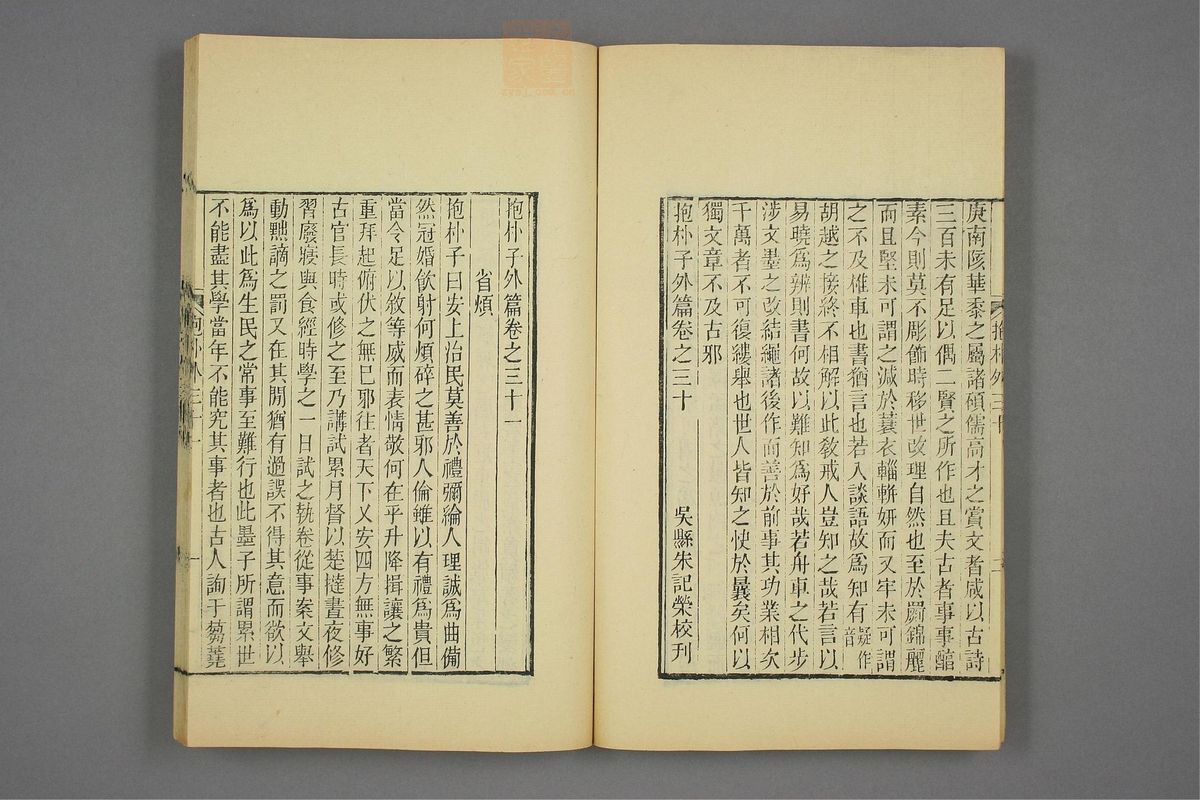 庚南陔華黍之屬諸碩儒高才之賞文者咸以古詩
三百未有足以偶二賢之所作也且夫古者事事醕
素今則莫不彫飾時移世改理自然也至於罽錦麗
而且堅未可謂之減於蓑衣輜軿妍而又牢未可謂
之不及椎車也書猶言也若入談語故爲知有疑作音
胡越之接終不相解以此敎戒人豈知之哉若言以
易曉爲辨則書何故以難知爲好哉若舟車之代步
涉文墨之改結繩諸後作而善於前事其功業相次
千萬者不可復縷舉也世人皆知之快於曩矣何以
獨文章不及古邪
抱朴子外篇卷之三十
吳縣朱記榮校刊
抱朴外三十
抱朴子外篇卷之三十一
省煩
抱朴子曰安上治民莫善於禮彌綸人理誠爲曲備
然冠婚飮射何煩碎之甚邪人倫雖以有禮爲貴但
當令足以敘等威而表情敬何在乎升降揖讓之繁
重拜起俯伏之無已邪往者天下乂安四方無事好
古官長時或修之至乃講試累月督以楚撻晝夜修
習廢寢與食經時學之一日試之執卷從事案文舉
動黜謫之罰又在其閒猶有過誤不得其意而欲以
爲以此爲生民之常事至難行也此墨子所謂累世
不能盡其學當年不能究其事者也古人詢于芻蕘
抱朴外三十一
一